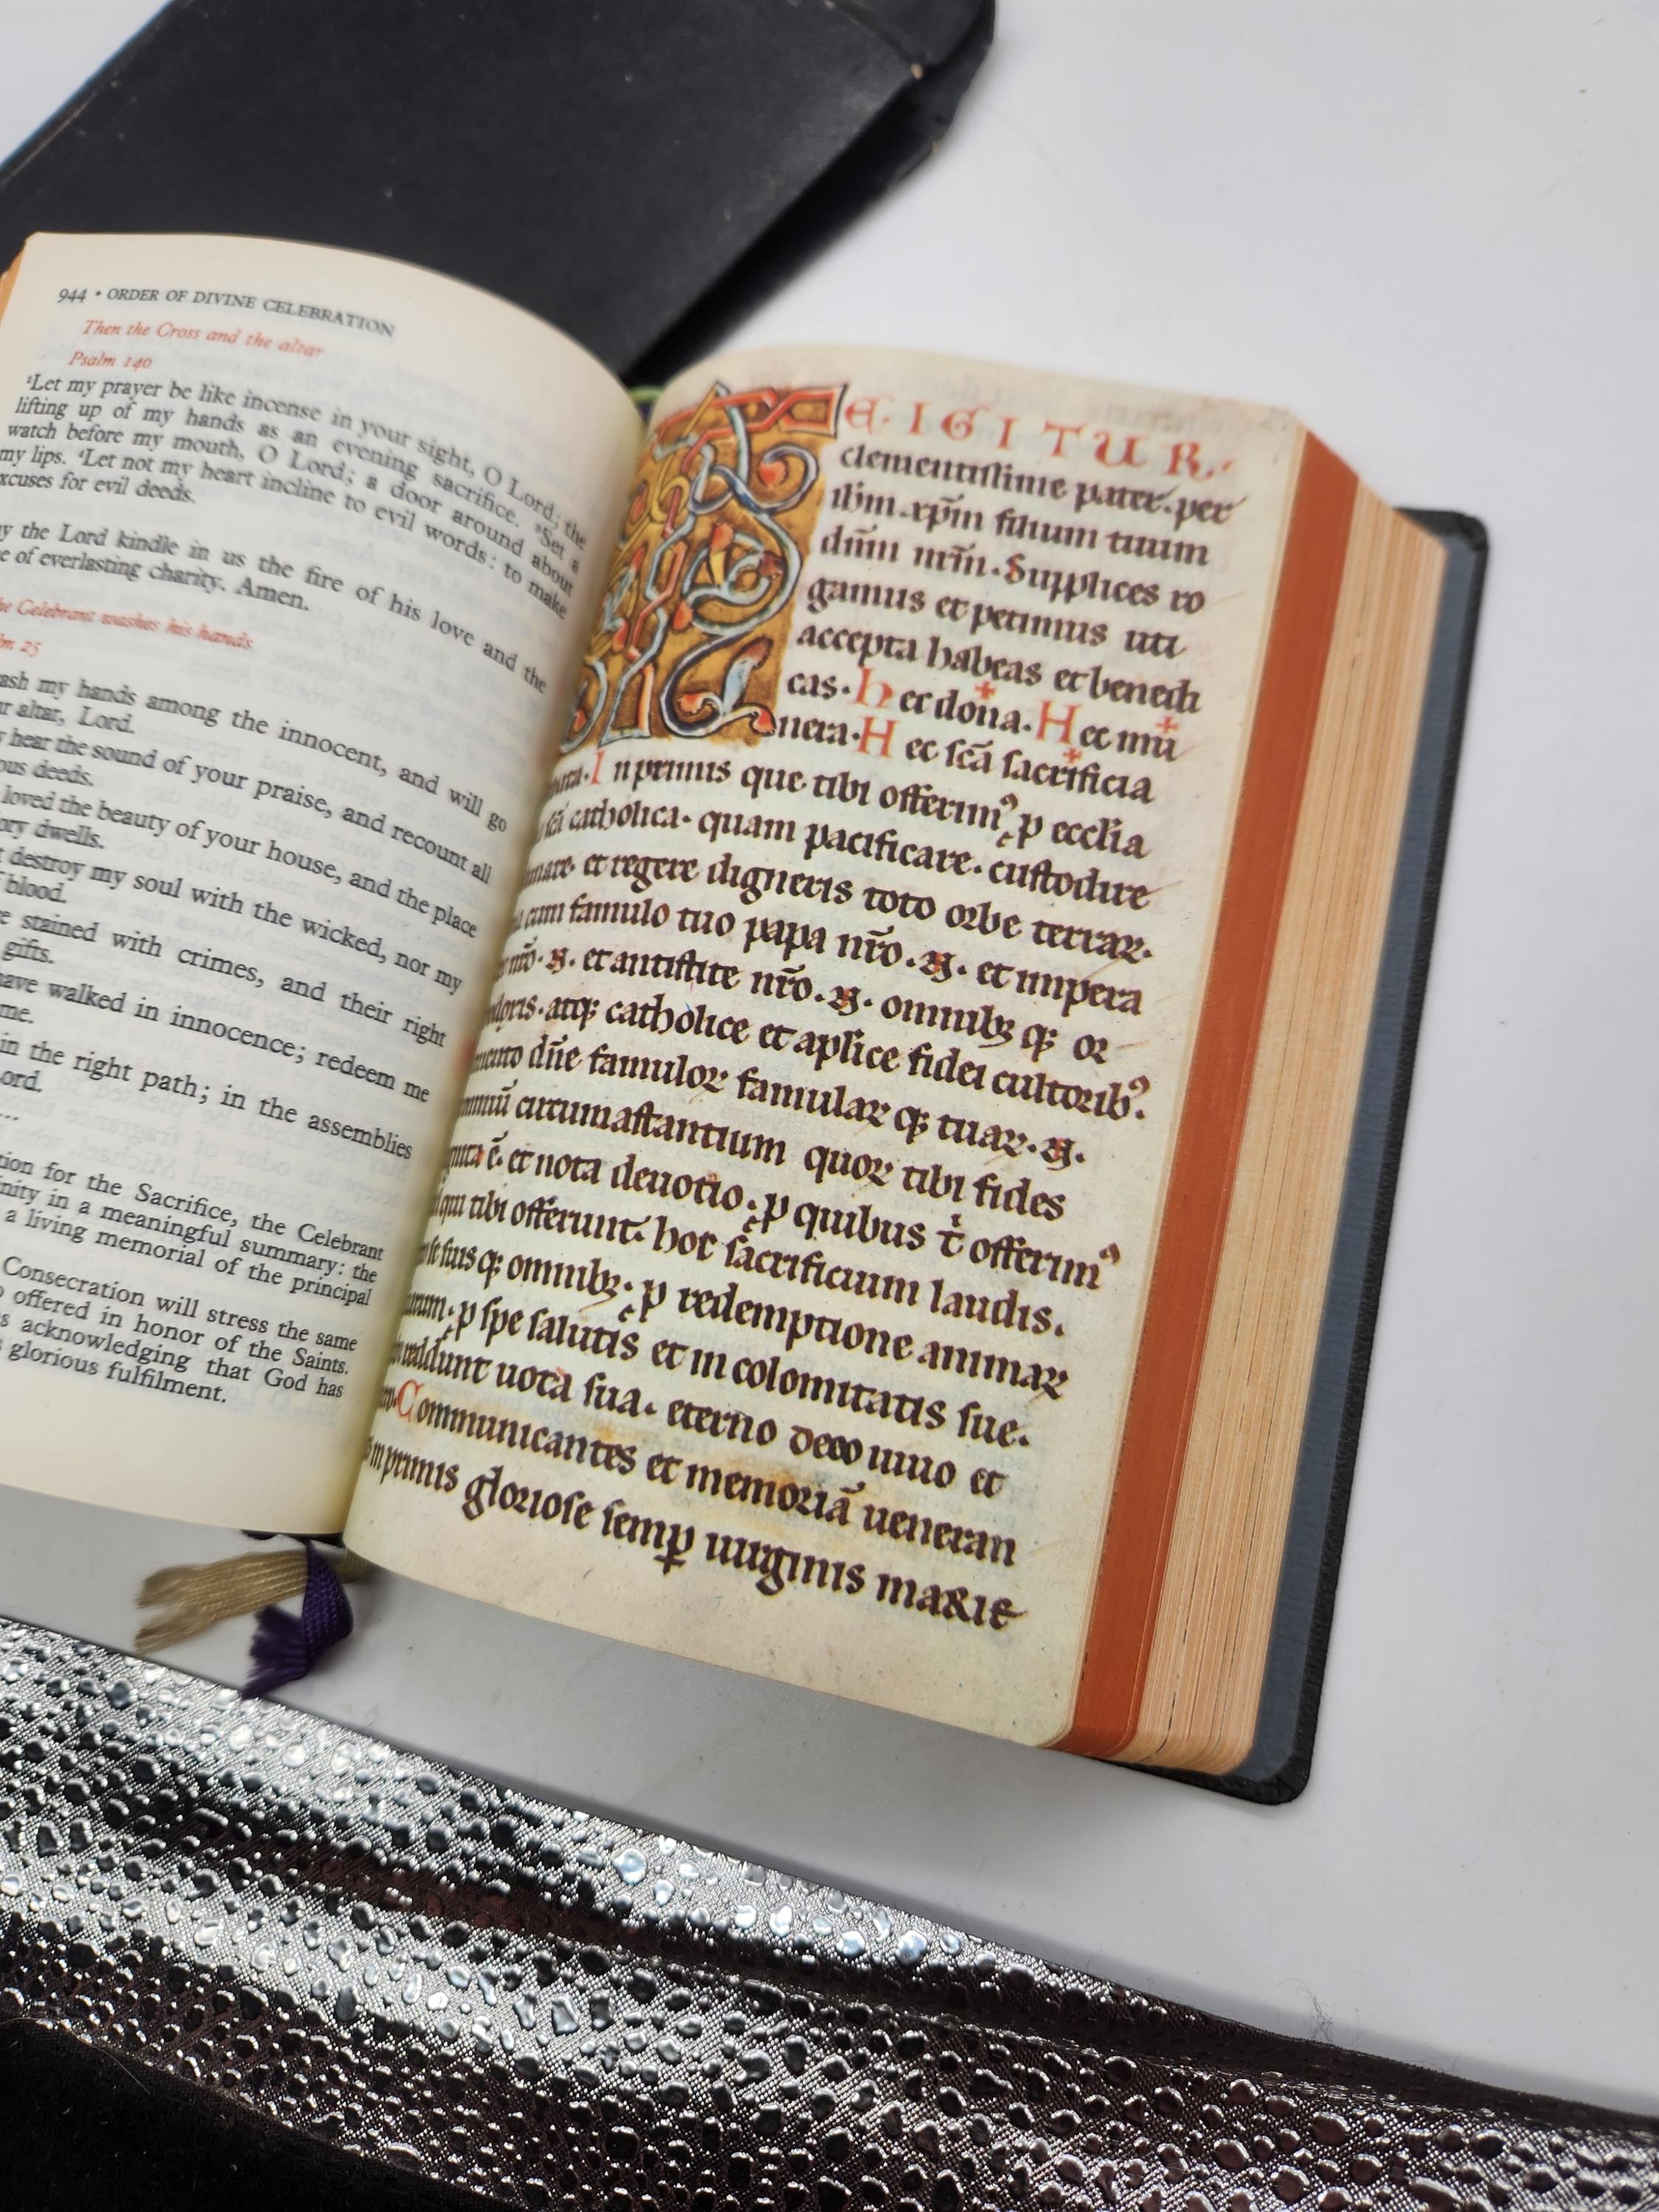 944 • ORDER OF DIVINE CELEBRATION
Then the Cross and the altar
Psalm 140
²Let my prayer be like incense in your sight, O Lord; the
lifting up of my hands as an evening sacrifice. ³Set a
watch before my mouth, O Lord; a door around about
my lips. ⁴Let not my heart incline to evil words: to make
excuses for evil deeds.
the Lord kindle in us the fire of his love and the
of everlasting charity. Amen.
the Celebrant washes his hands
25
my hands among the innocent, and will go
altar, Lord.
hear the sound of your praise, and recount all
deeds.
loved the beauty of your house, and the place
dwells.
destroy my soul with the wicked, nor my
blood.
stained with crimes, and their right
gifts.
have walked in innocence; redeem me
me.
in the right path; in the assemblies
...
for the Sacrifice, the Celebrant
in a meaningful summary: the
a living memorial of the principal
Consecration will stress the same
offered in honor of the Saints.
acknowledging that God has
glorious fulfilment.
TE·IGITUR·
clementissime pater. per
ihm. xpm filium tuum
dnm nrm. Supplices ro
gamus et petimus uti
accepta habeas et benedi
cas. Hec dona. Hec mu
nera. Hec sca sacrificia
In primis que tibi offerim⁹ p ecclia
catholica. quam pacificare. custodire
et regere digneris toto orbe terrar.
cum famulo tuo papa nro. N. et impera
nro. N. et antistite nro. N. omnib; q; or
atq; catholice et aplice fidei cultorib⁹.
dne famulor famular q; tuar. N.
circumastantium quor tibi fides
e. et nota deuotio. p quibus t offerim⁹
qui tibi offerunt. hoc sacrificium laudis.
suis q; omnib;. p redemptione animar
p spe salutis et incolomitatis sue.
reddunt uota sua. eterno deo uiuo et
Communicantes et memoria ueneran
in primis gloriose semp uirginis marie